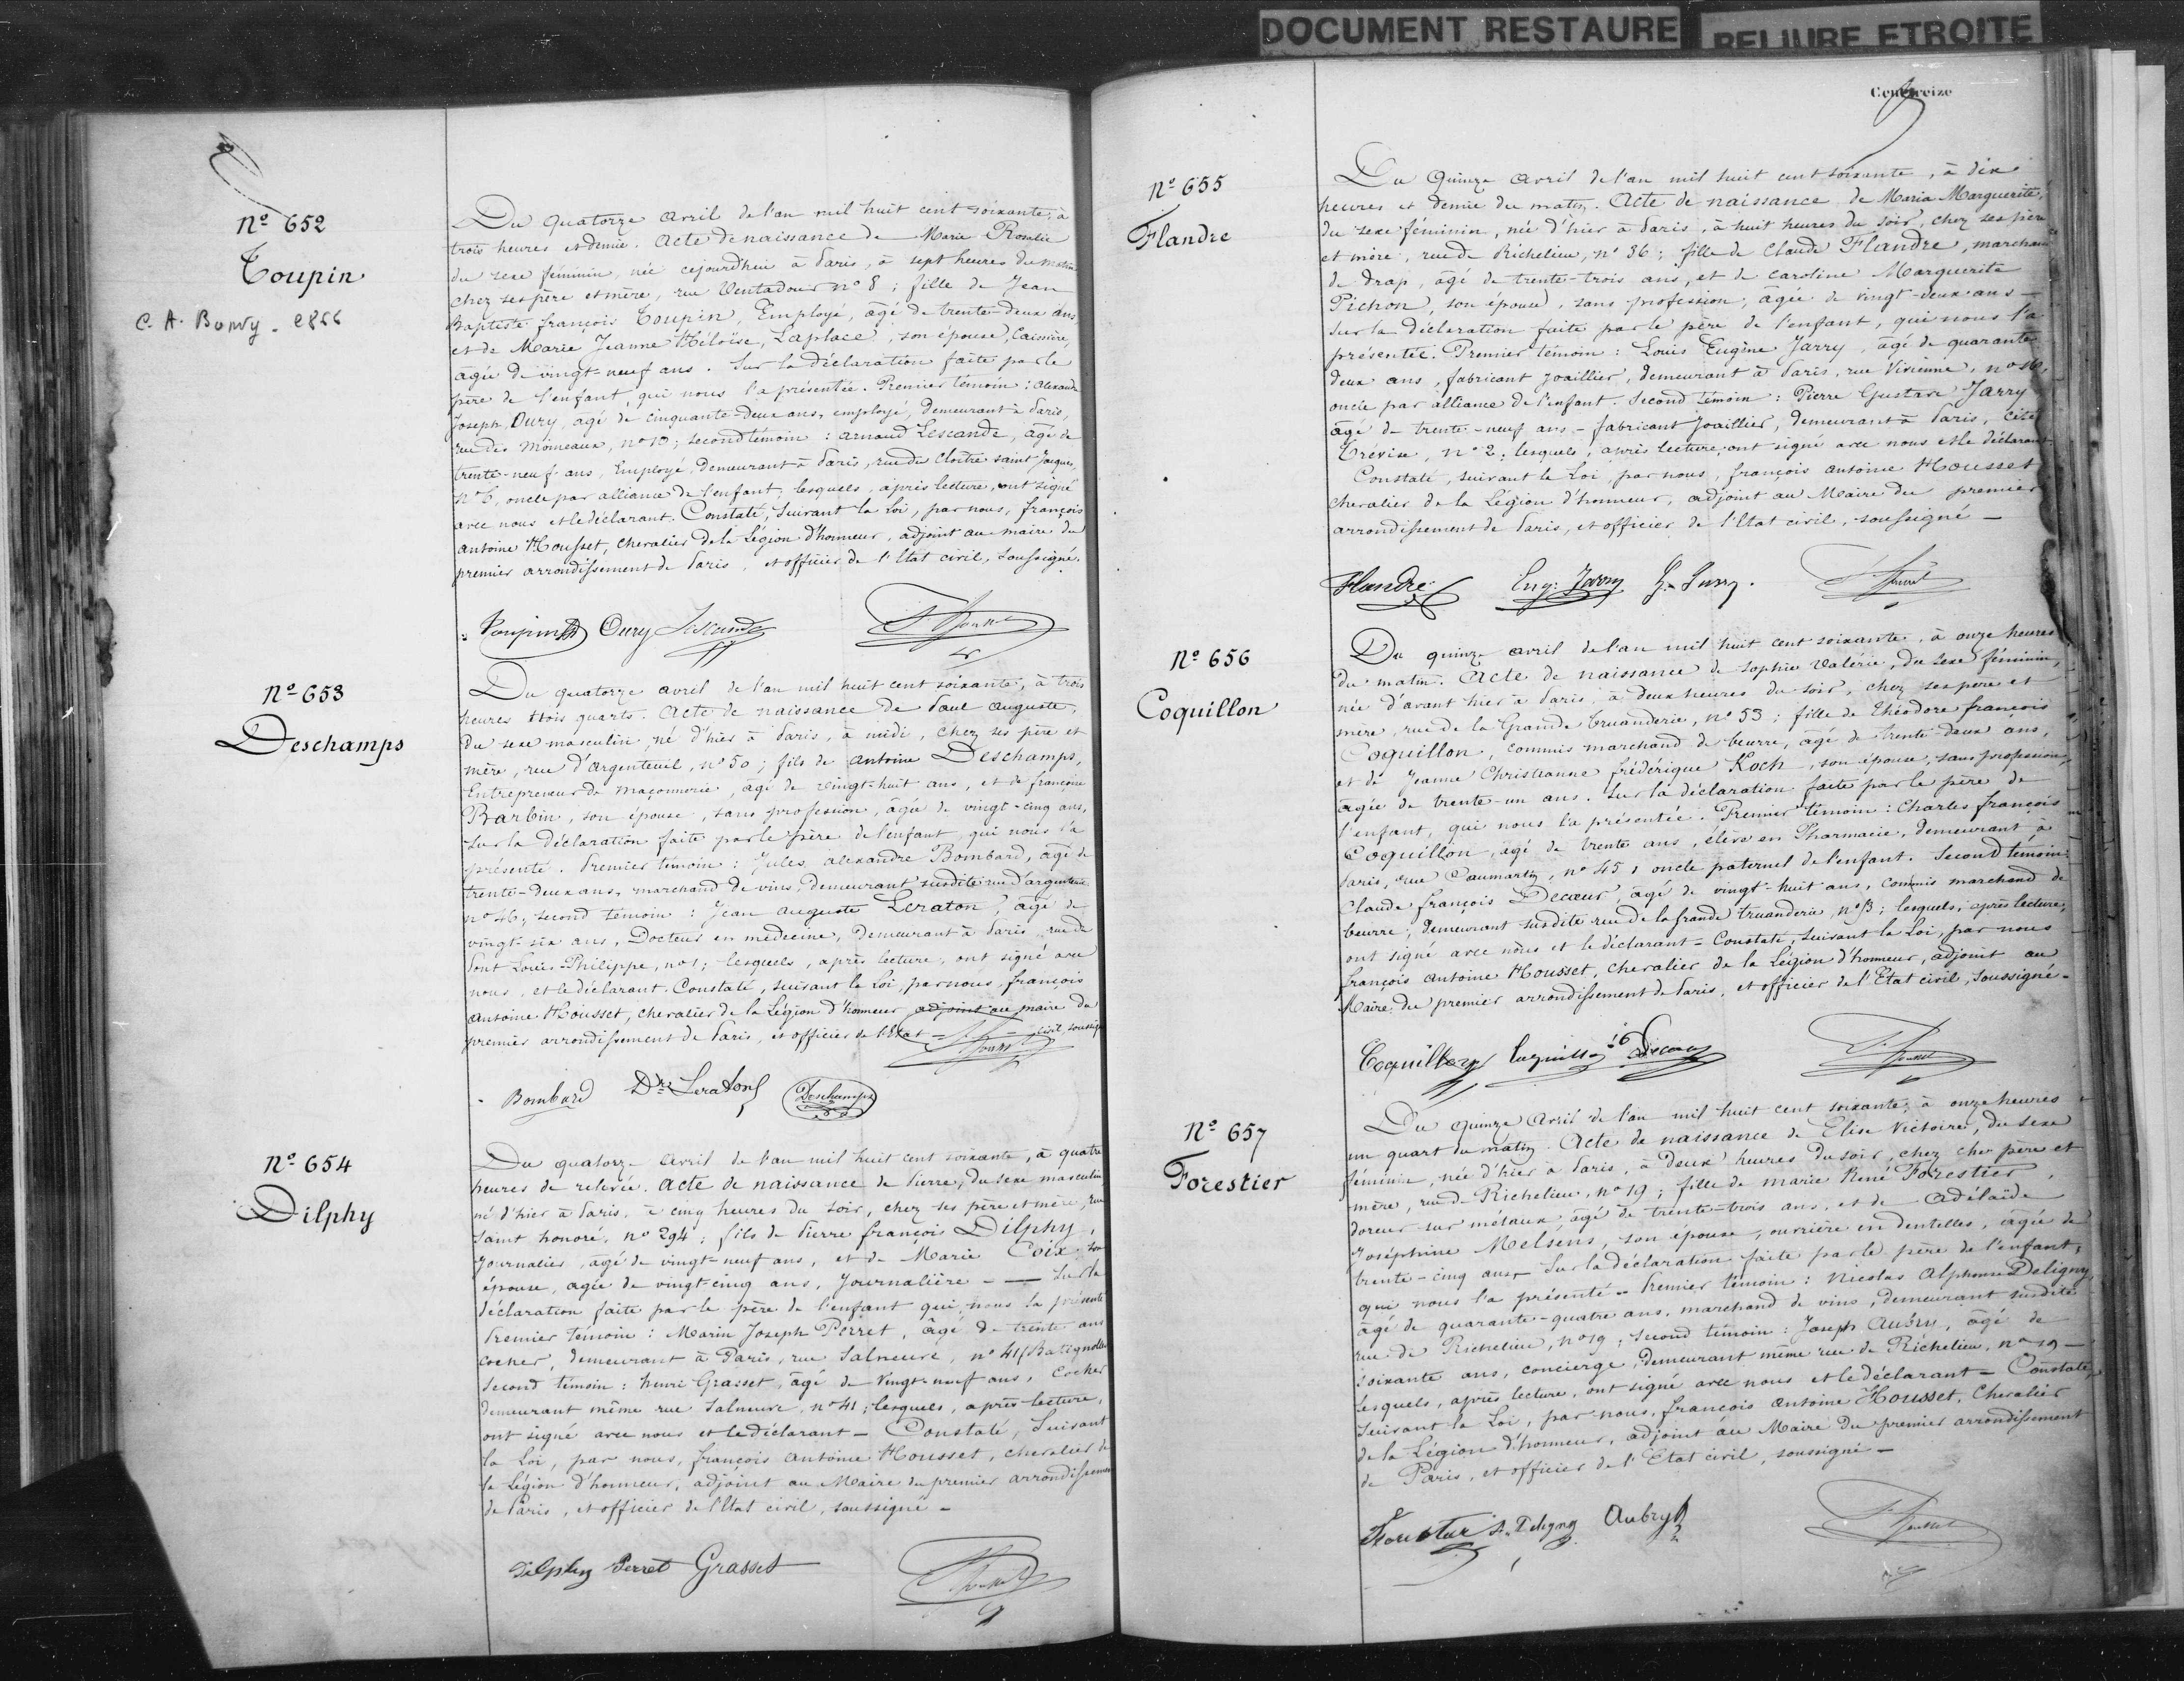 DOCUMENT RESTAURE
RELIURE ETROITE
Nº 652
Toupin
Du quatorze avril de l'an mil huit cent soixante, à
trois heures et demie. Acte de naissance de Marie Rosalie
du sexe féminin, née cejourd'hui à Paris, à sept heures du matin
chez ses père et mère, rue Ventadour nº 8 ; fille de Jean
Baptiste françois Toupin, Employé, âgé de trente-deux ans,
et de Marie Jeanne Héloïse, Laplace, son épouse, Caissière,
âgée de vingt-neuf ans. Sur la déclaration faite par le
père de l'enfant qui nous l'a présentée. Premier témoin : alexandre
Joseph, Oury, âgé de cinquante-deux ans, employé, demeurant à Paris,
rue des Moineaux, nº 10 ; second témoin : arnaud Lescande, âgé de
trente-neuf ans, Employé, demeurant à Paris, rue du Cloître saint Jacques,
Nº 6, oncle par alliance de l'enfant ; lesquels, après lecture, ont signé
avec nous et le déclarant. Constaté, suivant la Loi, par nous, françois
antoine Housset, chevalier de la Légion d'honneur, adjoint au maire du
premier arrondissement de Paris, et officier de l'Etat civil, soussigné.
Toupin Oury Lescande
Nº 653
Deschamps
Du quatorze avril de l'an mil huit cent soixante, à trois
heures trois quarts. Acte de naissance de Paul auguste,
du sexe masculin, né d'hier à Paris, à midi, chez ses père et
mère, rue d'argenteuil, nº 50 ; fils de antoine Deschamps,
Entrepreneur de maçonnerie, âgé de vingt-huit ans, et de françoise
Barbin, son épouse, sans profession, âgée de vingt-cinq ans,
sur la déclaration faite par le père de l'enfant, qui nous l'a
présenté. Premier témoin : Jules, alexandre Bombard, âgé de
trente-deux ans, marchand de vins, demeurant susdite rue d'argenteuil
nº 46, second témoin : Jean auguste Leraton, âgé de
vingt-six ans, Docteur en médecine, demeurant à Paris rue du
Pont Louis-Philippe, nº 1 ; lesquels, après lecture, ont signé avec
nous, et le déclarant. Constaté, suivant la Loi, par nous, françois
antoine Housset, chevalier de la Légion d'honneur adjoint au maire du
premier arrondissement de Paris, et officier de l'Etat civil, soussigné
Bombard Dr Leraton Deschamps
Nº 654
Dilphy
Du quatorze avril de l'an mil huit cent soixante, à quatre
heures de relevée. Acte de naissance de Pierre, du sexe masculin,
né d'hier à Paris, à cinq heures du soir, chez ses père et mère, rue
saint honoré, nº 294 ; fils de Pierre françois Dilphy,
Journalier, âgé de vingt-neuf ans, et de Marie Coix son
épouse, âgée de vingt-cinq ans, Journalière - — Sur la
déclaration faite par le père de l'enfant qui nous l'a présenté
Premier témoin : Marin Joseph Perret, âgé de trente ans
cocher, demeurant à Paris, rue Salneuve, nº 41 (Batignolles
Second témoin : henri Grasset, âgé de vingt-neuf ans, Cocher
demeurant même rue Salneuve, nº 41 ; lesquels, après lecture,
ont signé avec nous et le déclarant - Constaté, suivant
la Loi, par nous, françois antoine Housset, chevalier de
la Légion d'honneur, adjoint au Maire du premier arrondissement
de Paris, et officier de l'Etat civil, soussigné -
Dilphy Perret Grasset
Nº 655
Flandre
Du Quinze avril de l'an mil huit cent soixante, à dix
heures et demie du matin. Acte de naissance de Maria Marguerite,
du sexe féminin, née d'hier à Paris, à huit heures du soir, chez ses père
et mère, rue de Richelieu, nº 36 ; fille de Claude Flandre, marchand
de drap, âgé de trente-trois ans, et de Caroline Marguerite
Pichon, son épouse, sans profession, âgée de vingt-deux ans -
Sur la déclaration faite par le père de l'enfant, qui nous l'a
présentée. Premier témoin : Louis Eugène Jarry, âgé de quarante
deux ans, fabricant joaillier, demeurant à Paris, rue Vivienne, nº 16,
oncle par alliance de l'enfant. Second témoin : Pierre Gustave Jarry
âgé de trente-neuf ans - fabricant joaillier, demeurant à Paris, cité
Trévise, nº 2, lesquels, après lecture, ont signé avec nous et le déclarant
Constaté, suivant la Loi, par nous, françois antoine Housset
chevalier de la Légion d'honneur, adjoint au Maire du premier
arrondissement de Paris, et officier de l'Etat civil, soussigné -
Flandre Eug: Jarry G. Jarry.
Nº 656
Coquillon
Du quinze avril de l'an mil huit cent soixante, à onze heures
du matin. Acte de naissance de sophie Valérie, du sexe féminin,
née d'avant hier à Paris à deux heures du soir, chez ses père et
mère, rue de la Grande Truanderie, nº 53 ; fille de Théodore françois
Coquillon, commis marchand de beurre, âgé de trente-deux ans,
et de Jeanne Christianne frédérique Koch, son épouse, sans profession,
âgée de trente-un ans. Sur la déclaration faite par le père de
l'enfant, qui nous l'a présentée. Premier témoin : Charles françois
Coquillon, âgé de trente ans, élève en Pharmacie, demeurant à
Paris, rue Caumartin, nº 45, oncle paternel de l'enfant. Second témoin:
Claude françois Decœur, âgé de vingt-huit ans, commis marchand de
beurre, demeurant susdite rue de la grande truanderie, nº 53 ; lesquels, après lecture,
ont signé avec nous et le déclarant = Constaté, suivant la Loi, par nous
françois antoine Housset, chevalier de la Légion d'honneur, adjoint au
Maire du premier arrondissement de Paris, et officier de l'Etat civil, soussigné -
Coquillon Coquillon Decœur
Nº 657
Forestier
Du quinze avril de l'an mil huit cent soixante, à onze heures
un quart du matin. Acte de naissance de Elise Victoire, du sexe
féminin, née d'hier à Paris, à deux heures du soir, chez père et
mère, rue de Richelieu, nº 19 ; fille de marie René Forestier,
doreur sur métaux, âgé de trente-trois ans, et de Adélaïde
Joséphine Melsens, son épouse, ouvrière en dentelles, âgée de
trente-cinq ans - Sur la déclaration faite par le père de l'enfant,
qui nous l'a présenté - Premier témoin : Nicolas Alphonse Deligny,
âgé de quarante-quatre ans, marchand de vins, demeurant susdite
rue de Richelieu, nº 19 ; second témoin : Joseph Aubry, âgé de
soixante ans, concierge, demeurant même rue de Richelieu, nº 19 -
Lesquels, après lecture, ont signé avec nous et le déclarant - Constaté,
suivant la Loi, par nous, françois antoine Housset, Chevalier
de la Légion d'honneur, adjoint au Maire du premier arrondissement
de Paris, et officier de l'Etat civil, soussigné -
Forestier Deligny Aubry